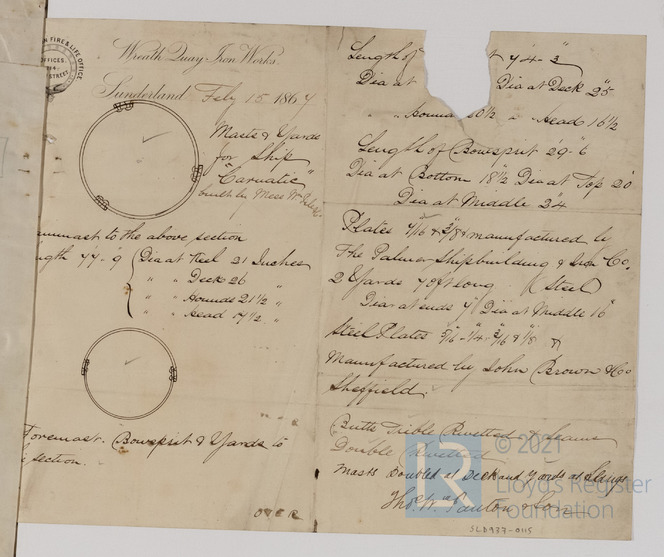 N FIRE & LIFE OFFICE
OFFICES
STREET
Wreath Quay Iron Works.
Sunderland Feby 15 1867
Masts & Yards
for Ship
"Carnatic"
built by Mess W
mast to the above section
ngth 77-9 Dia at Heel 21 Inches
" " Deck 26 "
" " Hounds 21½ "
" " Head 17½ "
Foremast. Bowsprit & Yards to
section.
OVER
Length of t 74-3
Dia at Dia at Deck 25
" Hounds 20½ " Head 16½
Length of Bowsprit 29-6
Dia at Bottom 18½ Dia at Top 20
Dia at Middle 24
Plates 7/16 & 3/8 manufactured by
The Palmer Shipbuilding & Iron Co.
2 Yards 70ft long (Steel)
Diar at ends 7 Dia at Middle 16
Steel Plates 5/16 - ¼ - 3/16 & 1/8
Manufactured by John Brown & Co
Sheffield.
Butts Trible Rivetted & Seams
Double Rivetted
Masts Doubled at Deck and Yards at Slings
Thos. W. Panton & Son
SLD937-0115
© 2021
Lloyd's Register
Foundation